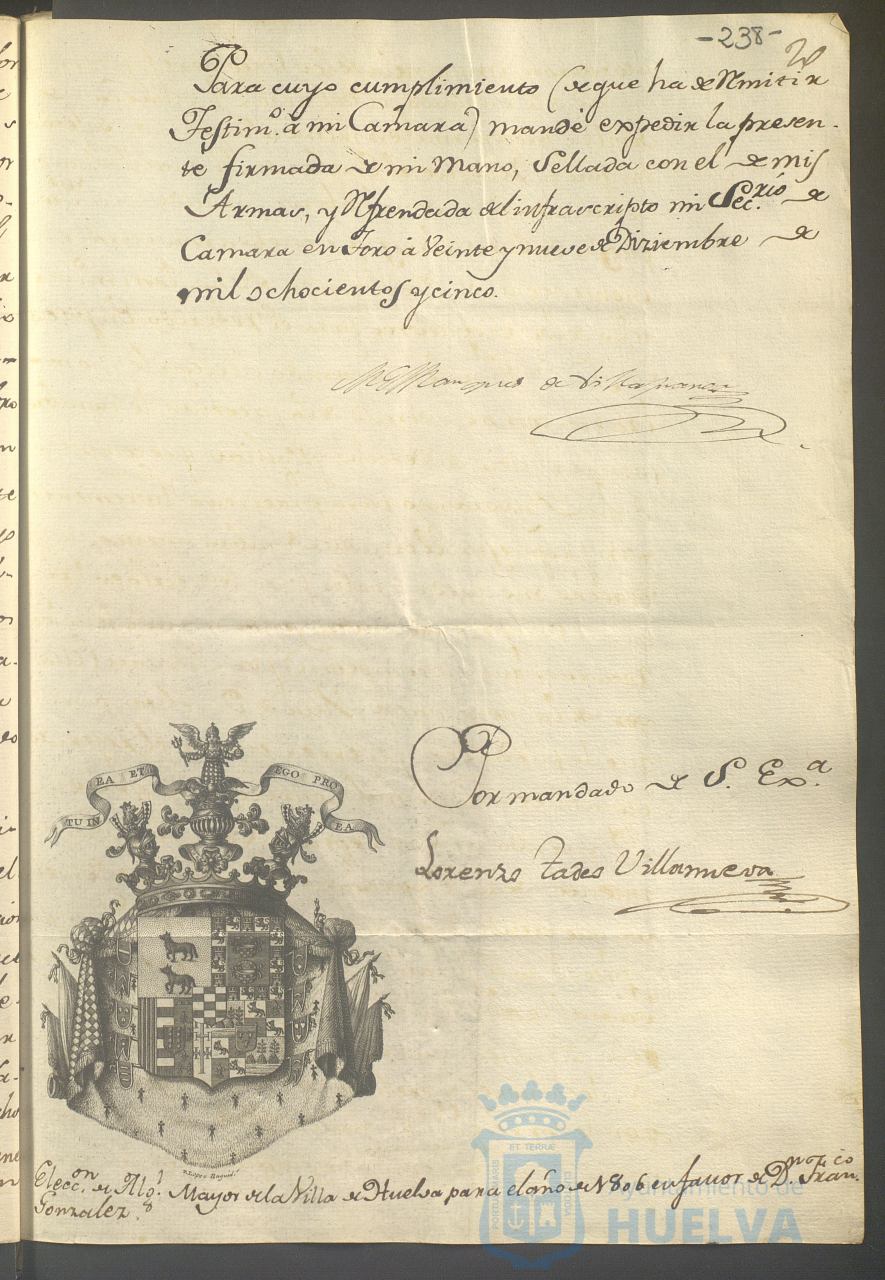 -238-
20
Para cuyo cumplimiento (de que ha de Rmitir
Testim.o a mi Camara) mandè expedir la presen-
te firmada de mi Mano, Sellada con el de mis
Armas, y Rfrendada del infrascripto mi Sec.rio de
Camara en Toro à Veinte y nueve de Diziembre de
mil ochocientos y cinco.
El Marques de Villafranca
Por mandado de S. Ex.a
Lorenzo Tadeo Villanueva
TU IN EA ET EGO PRO EA
Elecc.on de Alg.l Mayor de la Villa de Huelva para el año de 1806 en favor de D.n Fran.co
Gonzalez.
ET TERRÆ
Ayuntamiento de
HUELVA